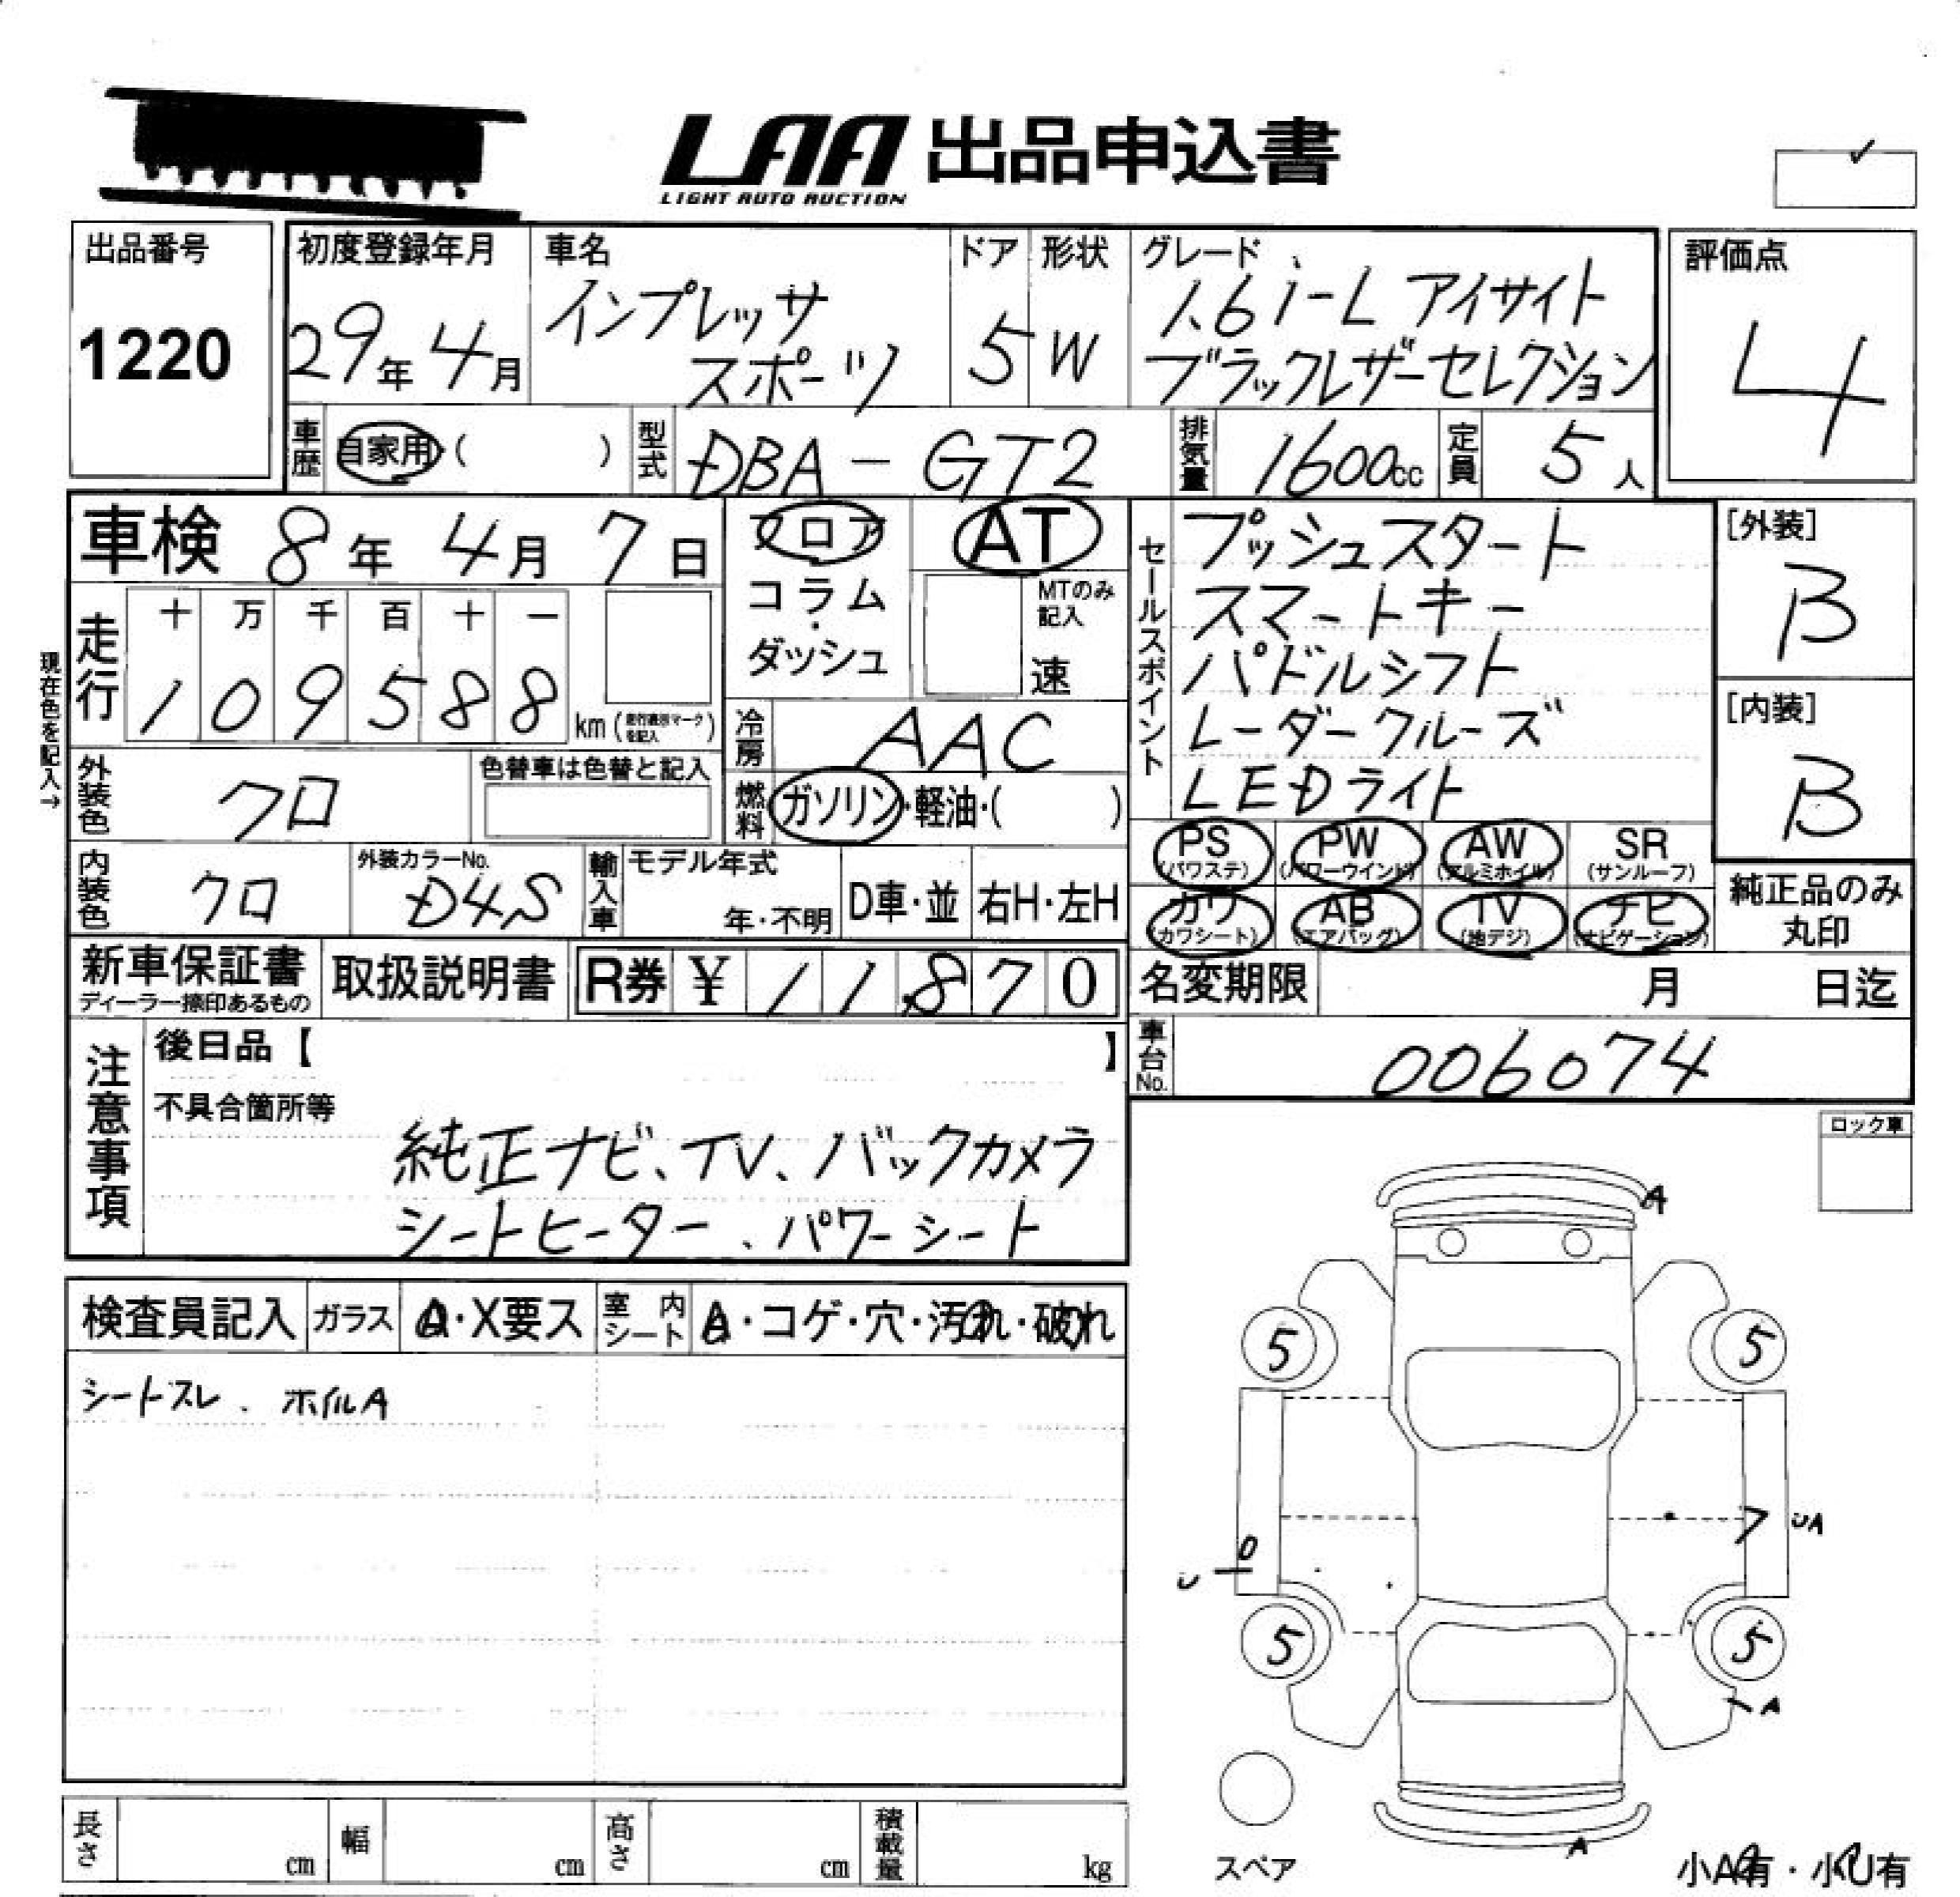 LAA 出品申込書
LIGHT AUTO AUCTION
出品番号
1220
初度登録年月
29年 4月
車名
インプレッサ
スポーツ
ドア
5
形状
W
グレード
1.6i-L アイサイト
ブラックレザーセレクション
評価点
4
車歴
自家用・( )
型式
DBA-GT2
排気量
1600cc
定員
5人
車検 8年 4月 7日
フロア
コラム
・
ダッシュ
AT
MTのみ
記入
速
現在色を記入→
走行
十 万 千 百 十 一
1 0 9 5 8 8
km(走行表示マークを記入)
冷房
AAC
外装色
クロ
色替車は色替と記入
燃料
ガソリン・軽油・( )
内装色
クロ
外装カラーNo.
D4S
輸入車
モデル年式
年・不明
D車・並
右H・左H
セールスポイント
プッシュスタート
スマートキー
パドルシフト
レーダークルーズ
LEDライト
[外装]
B
[内装]
B
PS
(パワステ)
PW
(パワーウインド)
AW
(アルミホイル)
SR
(サンルーフ)
カワ
(カワシート)
AB
(エアバッグ)
TV
(地デジ)
ナビ
(ナビゲーション)
純正品のみ
丸印
新車保証書
ディーラー捺印あるもの
取扱説明書
R券 ¥ 11,870
名変期限
月 日迄
車台No.
006074
注意事項
後日品【 】
不具合箇所等
純正ナビ、TV、バックカメラ
シートヒーター、パワーシート
ロック車
検査員記入
ガラス
A・X要ス
室内シート
A・コゲ・穴・汚れ・破れ
シートスレ、ホイルA
A
5
5
UA
U
5
5
A
A
スペア
小A有・小U有
長さ
cm
幅
cm
高さ
cm
積載量
kg